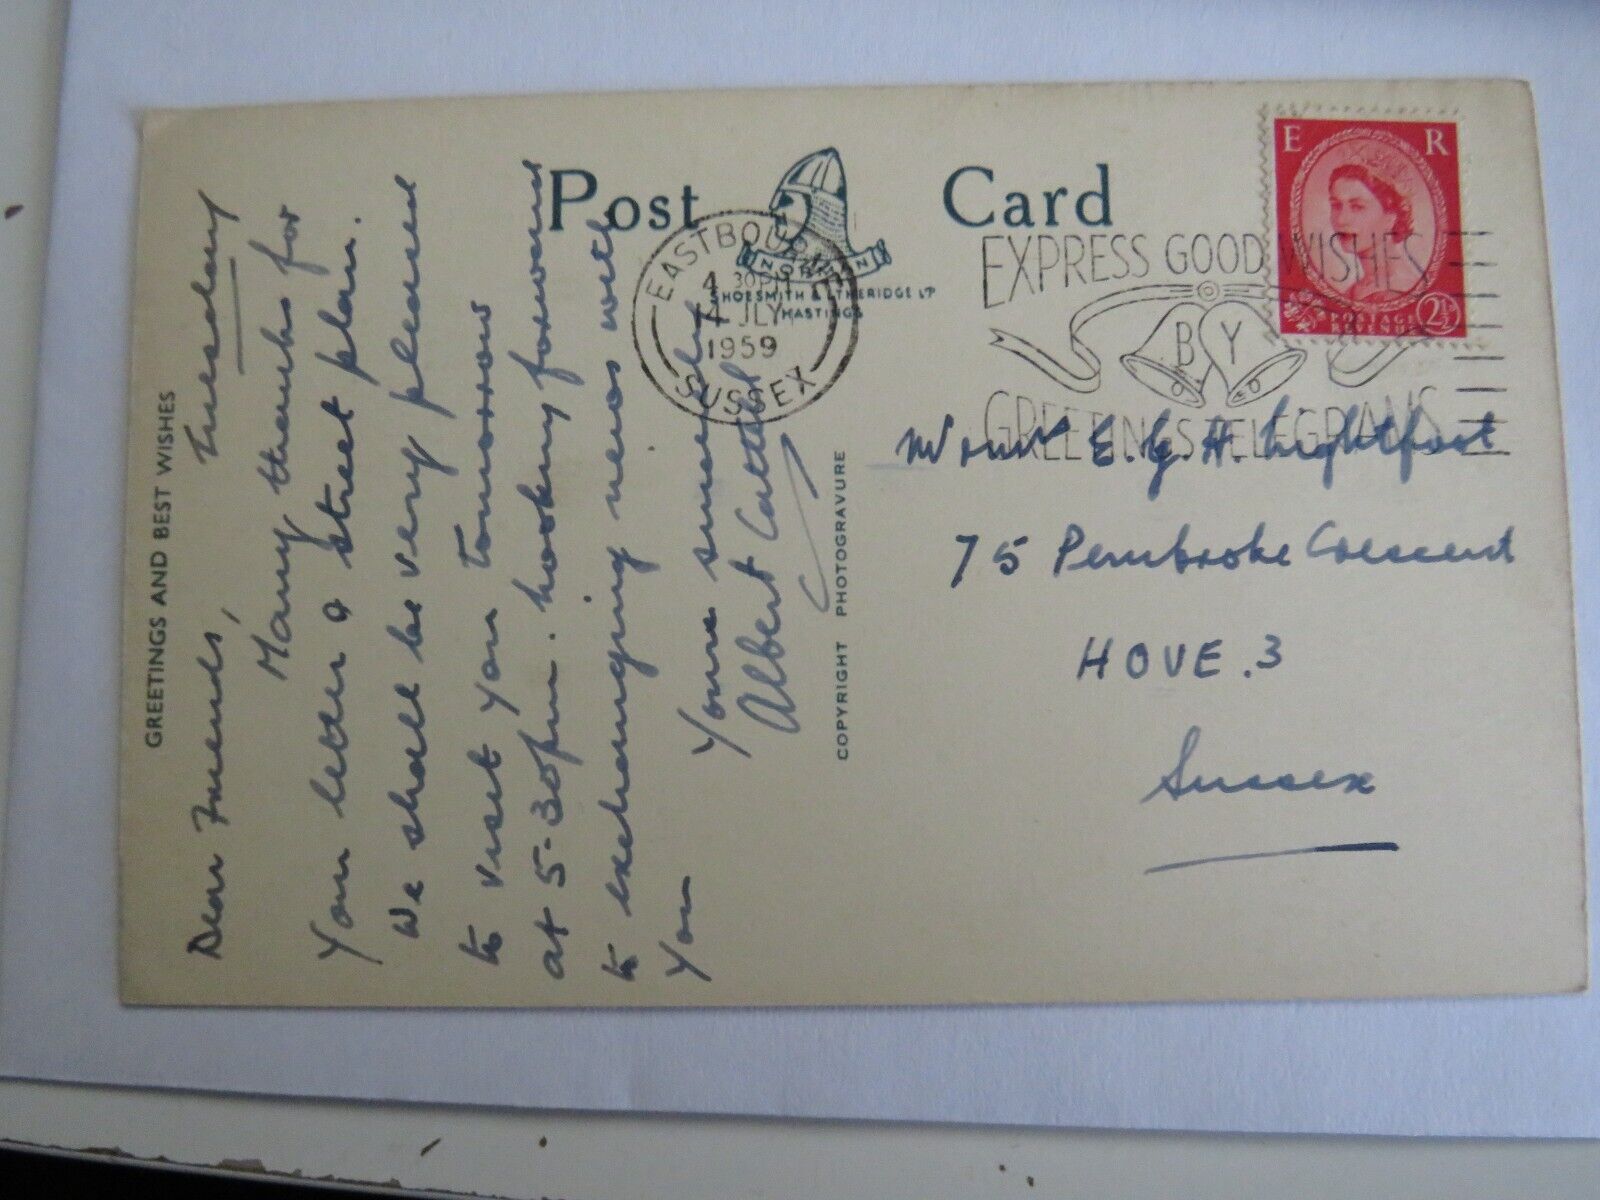 GREETINGS AND BEST WISHES
Tuesday
Dear Friends,
Many thanks for
your letter & street plan.
We shall be very pleased
to visit you tomorrow
at 5-30pm. Looking forward
to exchanging news with
you
Yours sincerely
Albert
COPYRIGHT PHOTOGRAVURE
Post Card
NORMAN
SHOESMITH & ETHERIDGE LTD
HASTINGS
EASTBOURNE
4 30PM
JLY
1959
SUSSEX
EXPRESS GOOD WISHES
BY
GREETINGS TELEGRAMS
E R
POSTAGE
REVENUE
2½D
E. G. H. Lightfoot
75 Pembroke Crescent
HOVE.3
Sussex